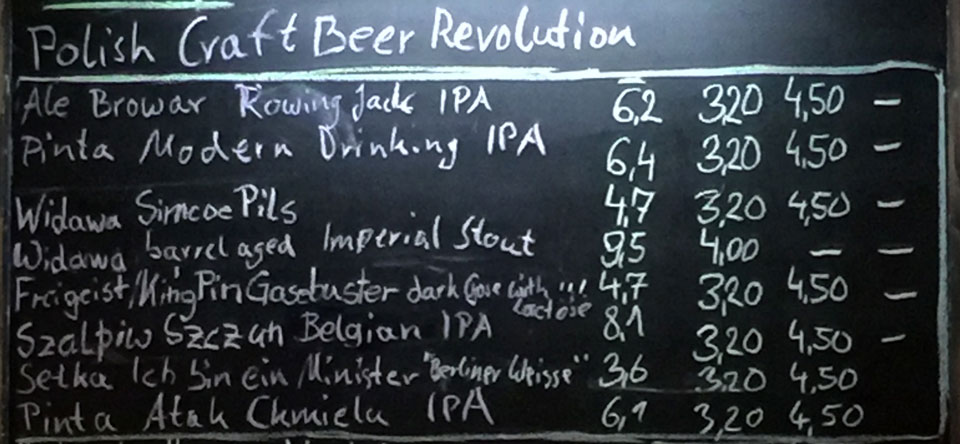 Polish Craft Beer Revolution
Ale Browar Rowing Jack IPA 6,2 3,20 4,50 –
Pinta Modern Drinking IPA 6,4 3,20 4,50 –
Widawa Simcoe Pils 4,7 3,20 4,50 –
Widawa barrel aged Imperial Stout 9,5 4,00 – –
Freigeist/KingPin Gosebuster dark Gose with lactose !!! 4,7 3,20 4,50 –
Szałpiw Szczun Belgian IPA 8,1 3,20 4,50 –
Setka Ich bin ein Minister "Berliner Weisse" 3,6 3,20 4,50
Pinta Atak Chmielu IPA 6,1 3,20 4,50